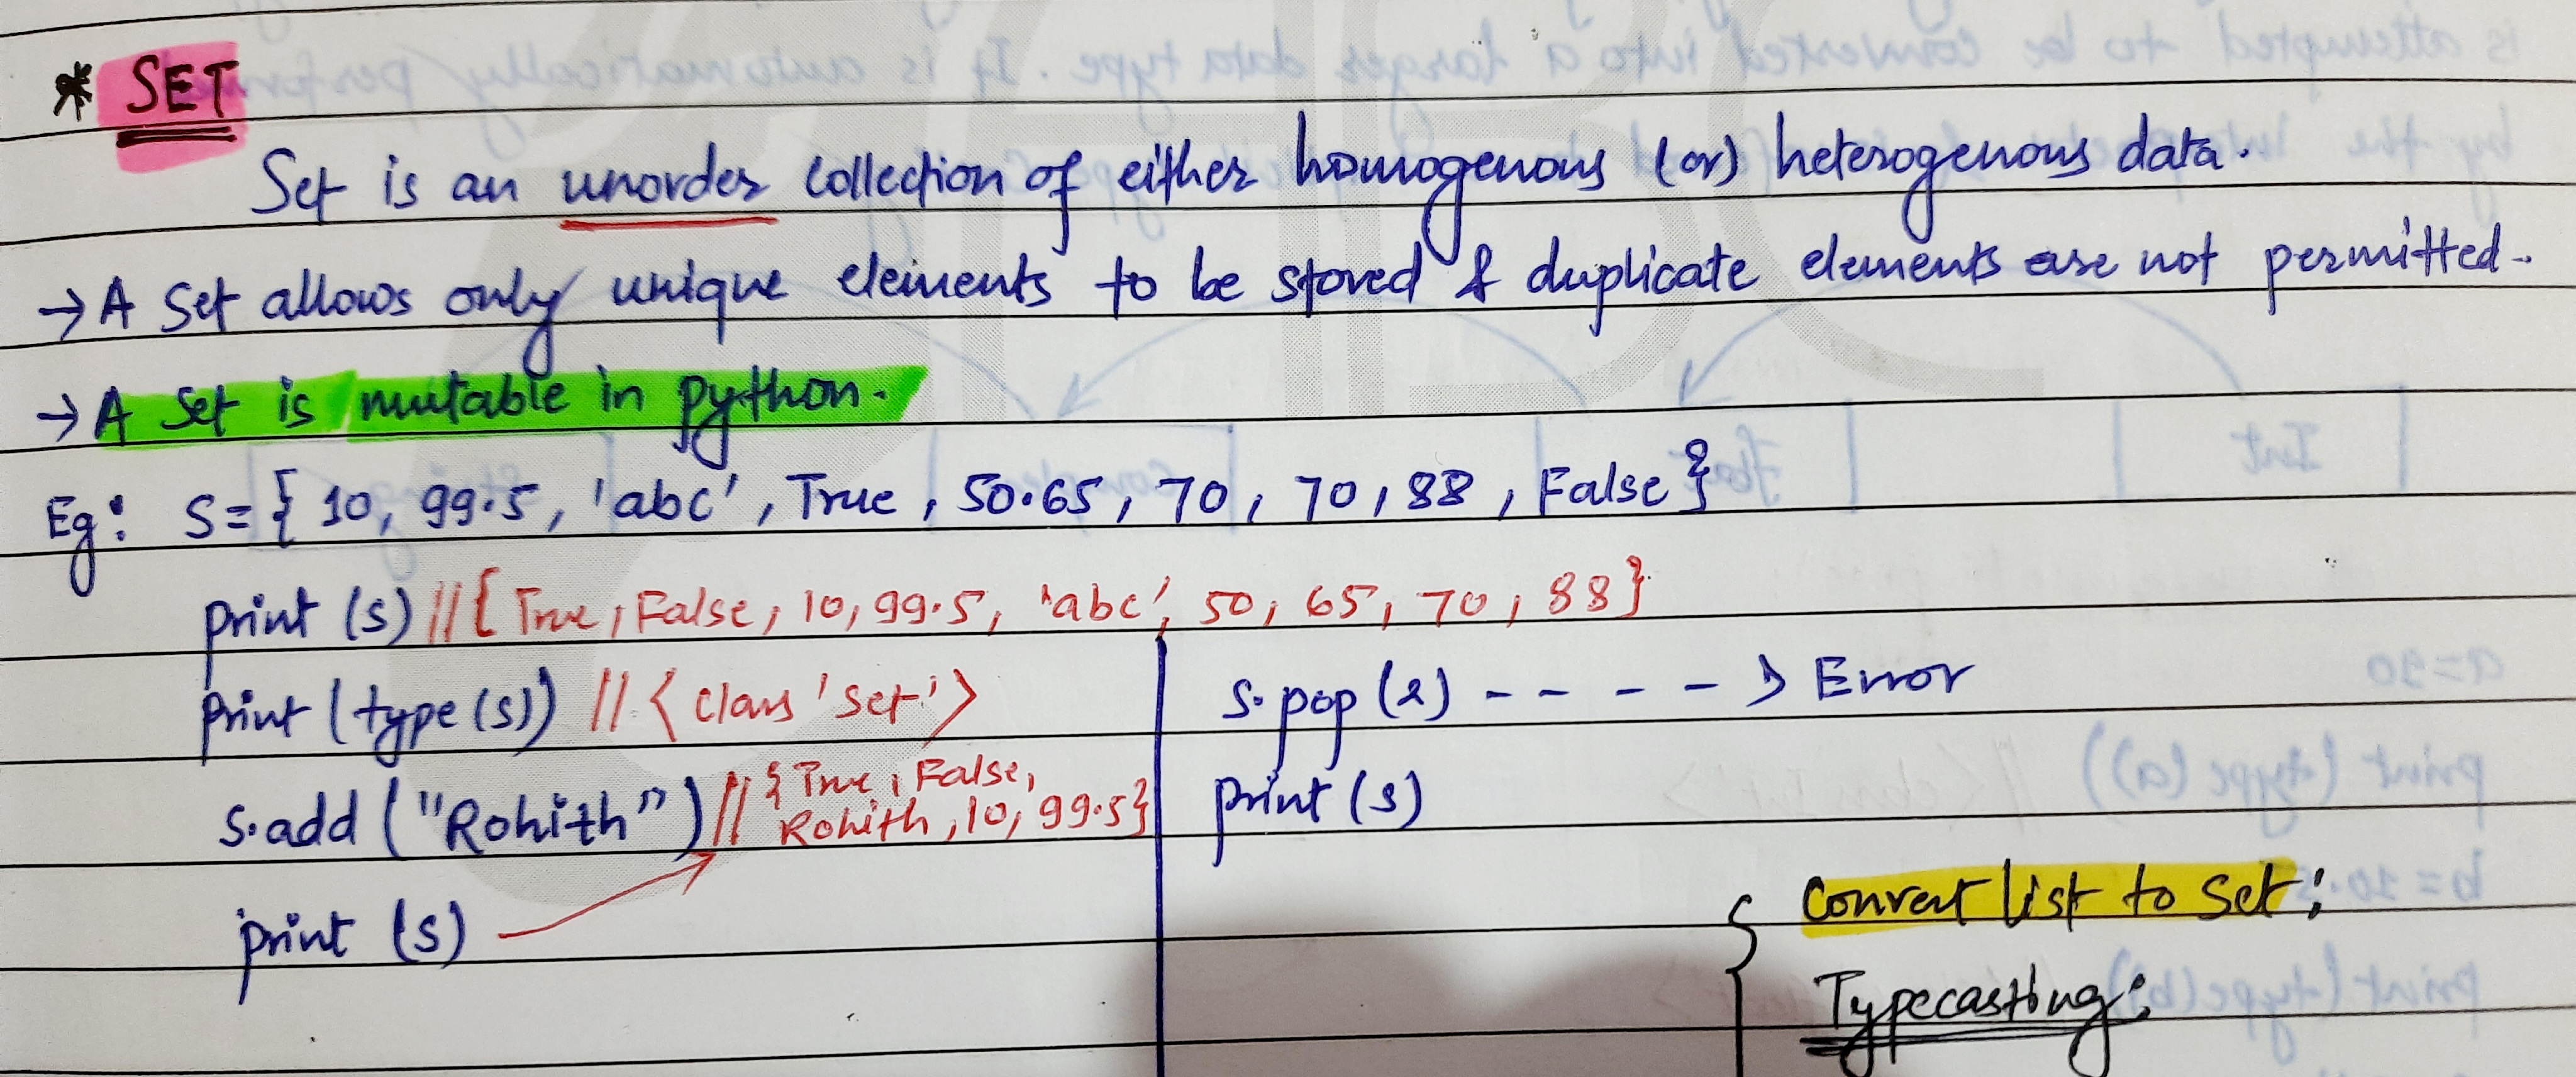 * SET
Set is an unorder collection of either homogenous (or) heterogenous data.
→ A Set allows only unique elements to be stored & duplicate elements are not permitted.
→ A Set is mutable in python.
Eg: S = { 10, 99.5, 'abc', True, 50.65, 70, 70, 88, False }
print (s) // { True, False, 10, 99.5, 'abc', 50, 65, 70, 88 }
print (type (s)) // < class 'set' >
s.add ("Rohith") // { True, False,
Rohith, 10, 99.5 }
print (s)
s.pop (2) - - - - > Error
print (s)
Convert list to Set :
Typecasting :